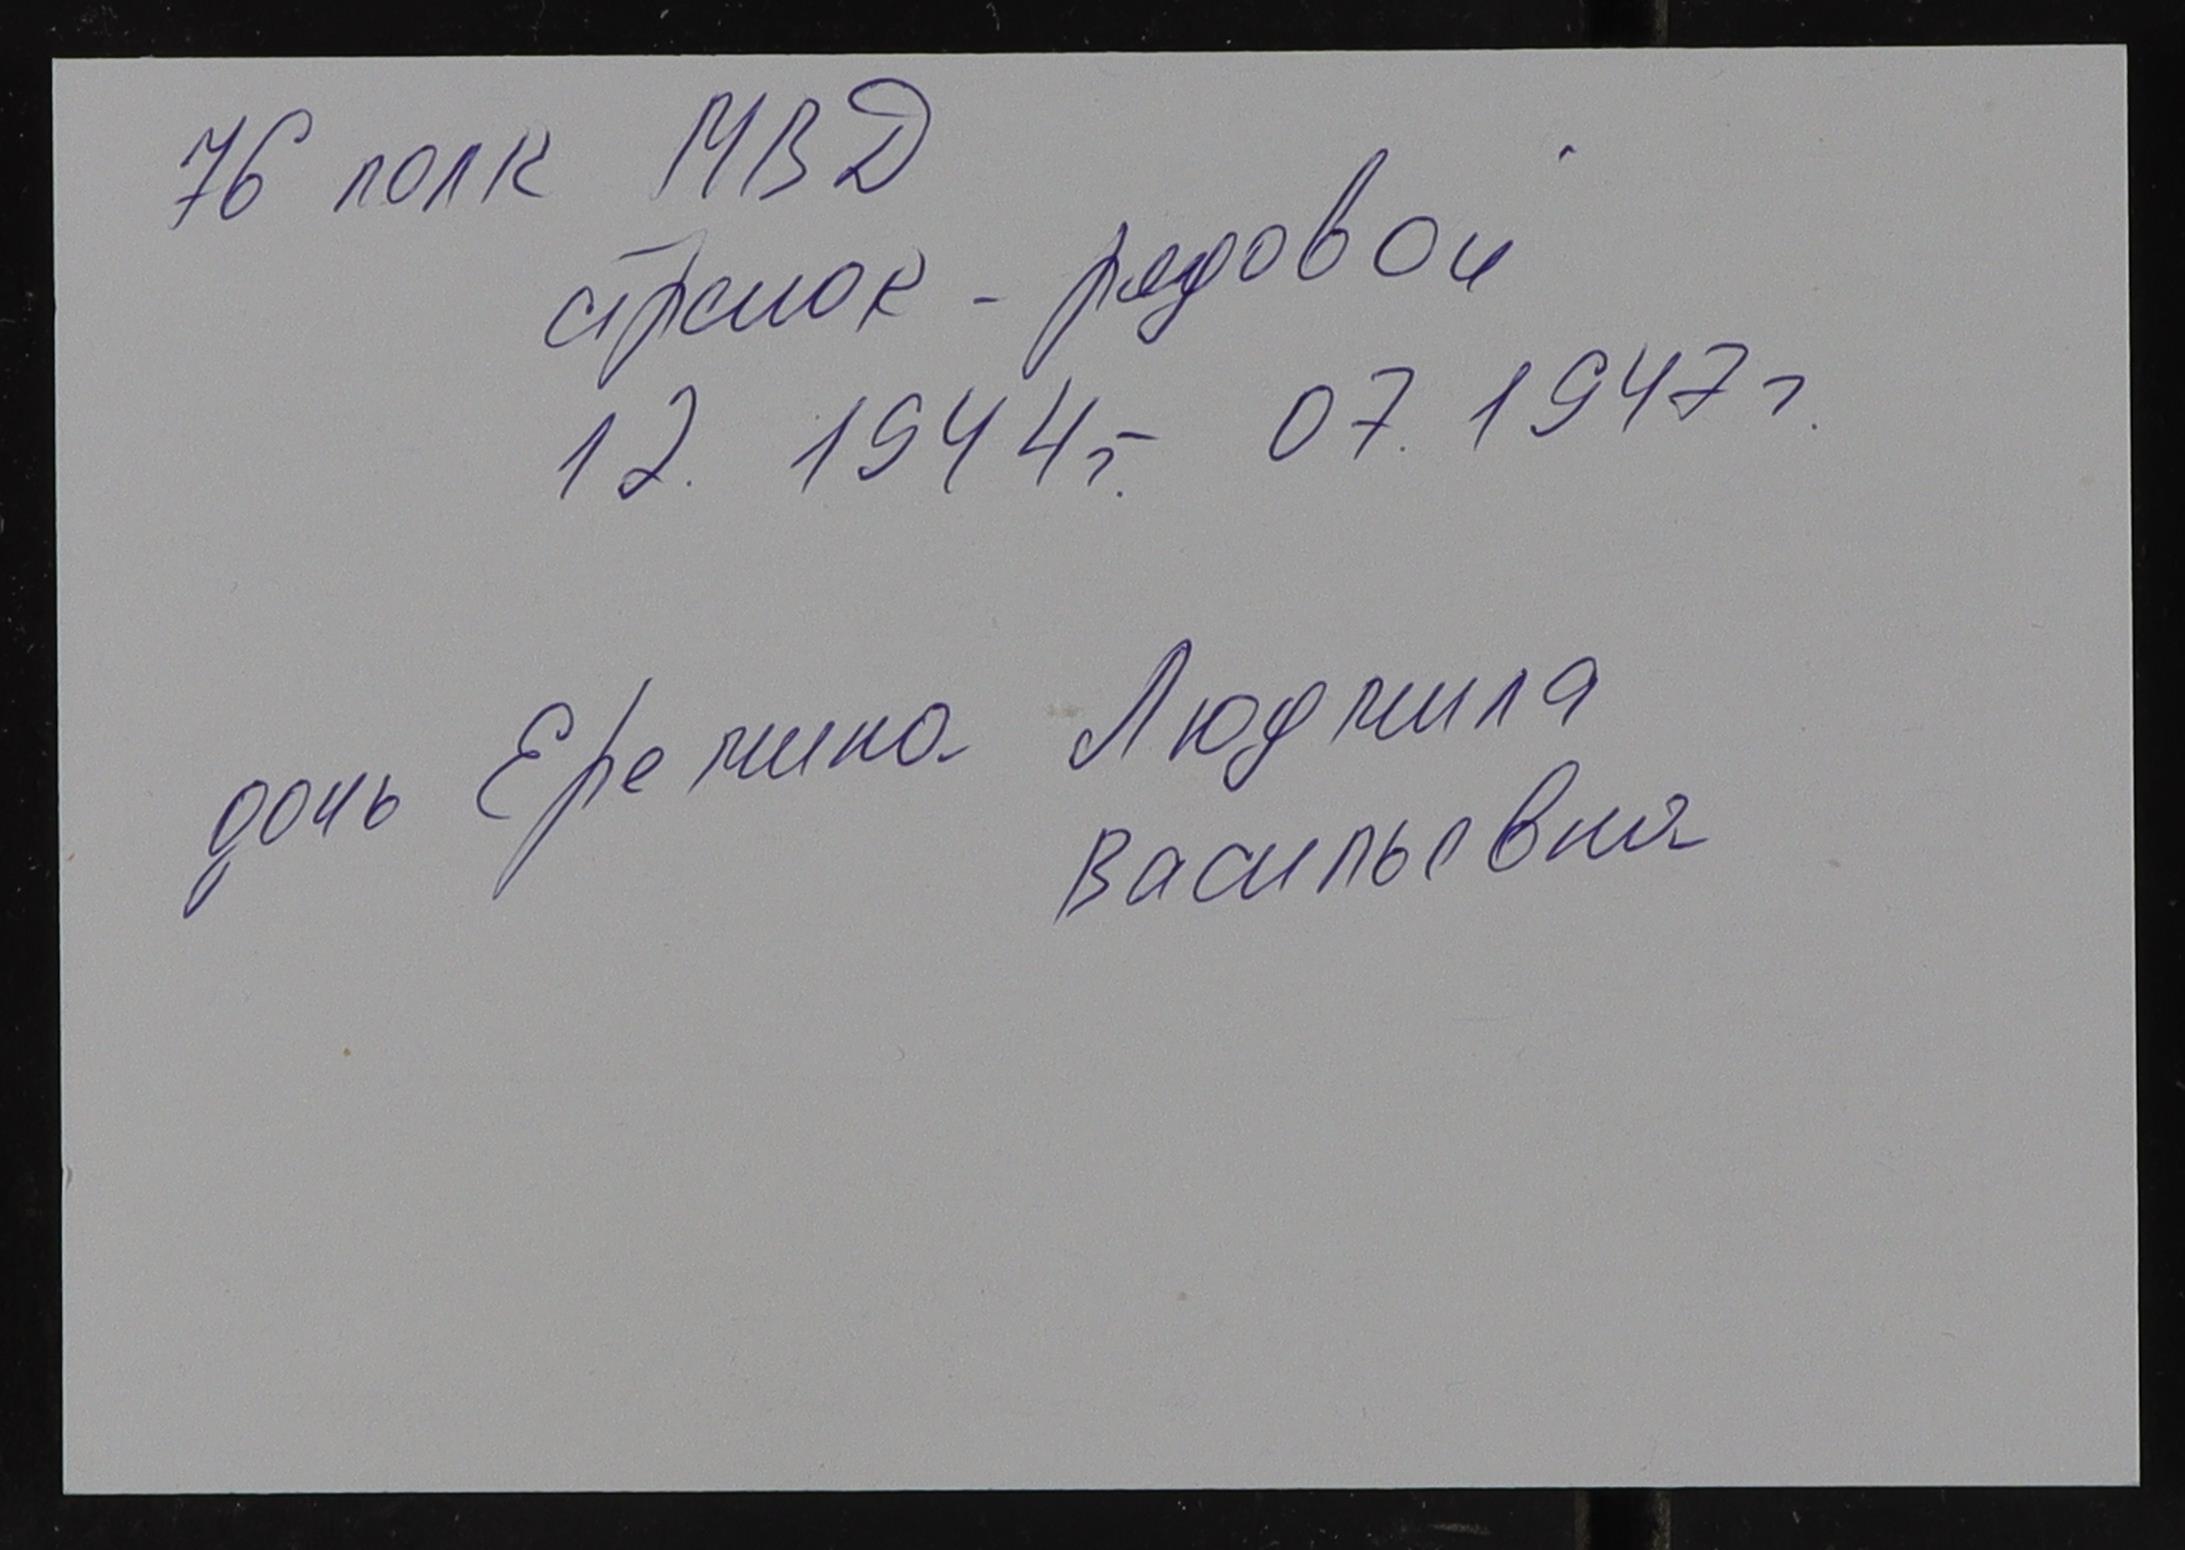 76 полк МВД
стрелок - рядовой
12. 1944г. - 07. 1947г.
дочь Еремина Людмила
Васильевна